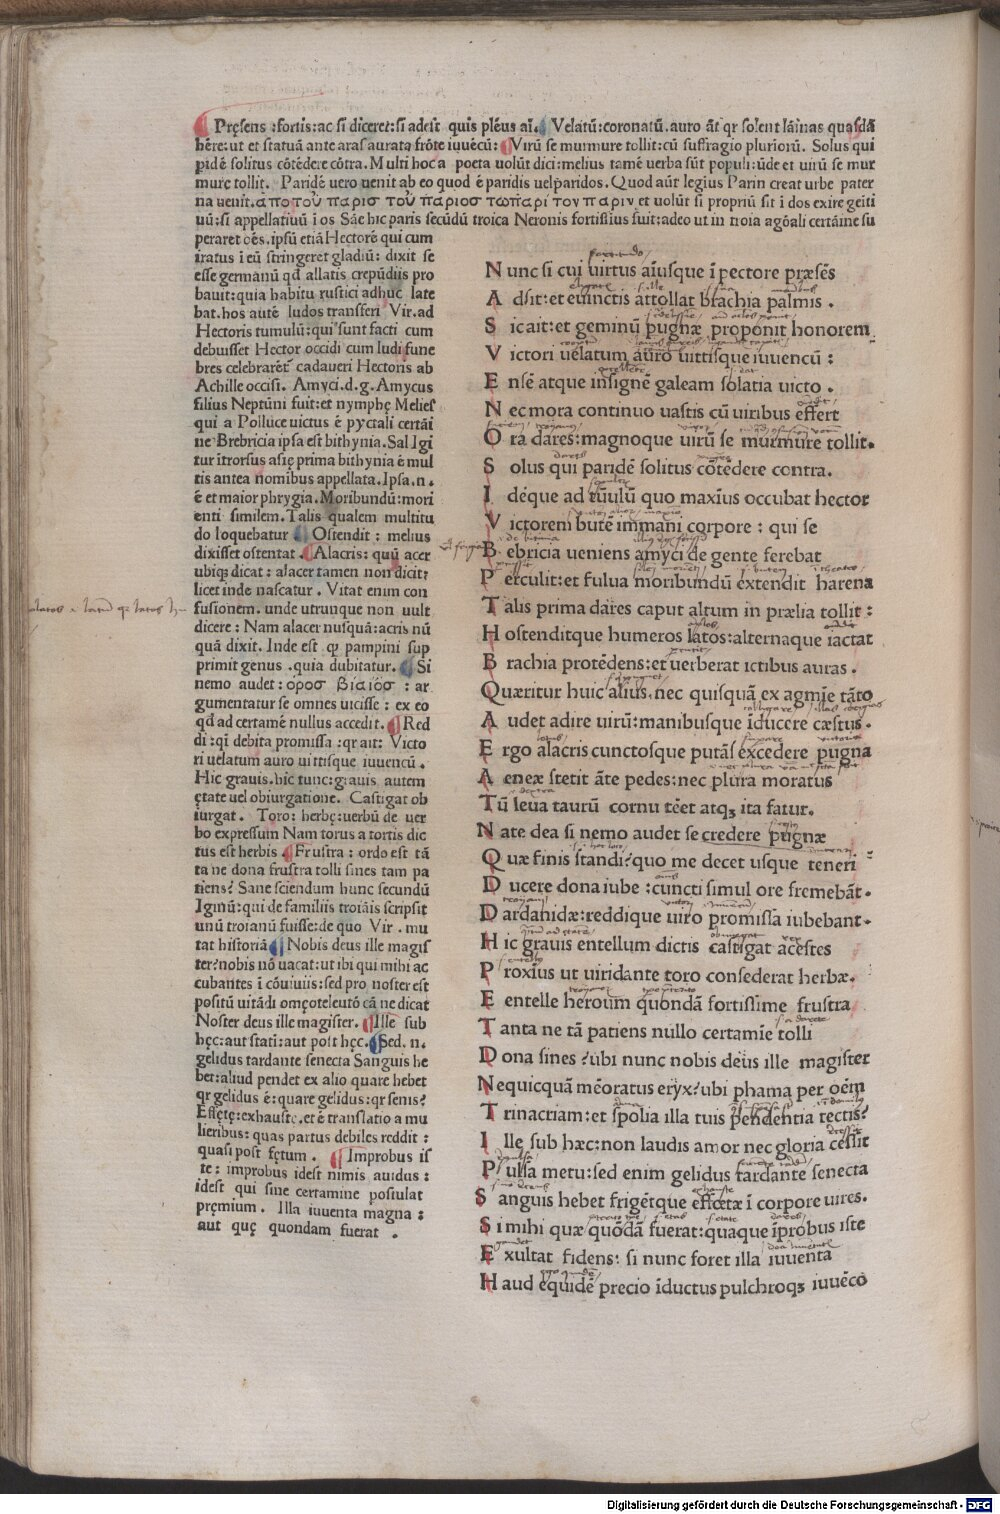 Pręsens :fortis: ac si diceret: si adest quis plēus aī. Velatū: coronatū. auro āt qr solent lāinas quasdā
hēre: ut et statuā ante aras aurata frōte iuuēcū: Virū se murmure tollit: cū suffragio pluriorū. Solus qui
pidē solitus cōtēdere cōtra. Multi hoc a poeta uolūt dici: melius tamē uerba sūt populi: ūde et uirū se mur
mure tollit. Paridē uero uenit ab eo quod ē paridis uelparidos. Quod aūt legius Parin creat urbe pater
na uenit. ἀπο τοὺ παρισ τοὺ παριοσ τωπαρι τον παριν et uolūt si propriū sit i dos exire geiti
uū: si appellatiuū i os Sāe hic paris secūdū troica Neronis fortissius fuit: adeo ut in troia agōali certāine su
peraret oēs. ipsū etiā Hectorē qui cum
iratus ī eū stringeret gladiū: dixit se
esse germanū qd allatis crepūdiis pro
bauit: quia habitu rustici adhuc late
bat. hos autē ludos transferi Vir. ad
Hectoris tumulū: qui sunt facti cum
debuisset Hector occidi cum ludi fune
bres celebrarēt cadaueri Hectoris ab
Achille occisi. Amyci. d. g. Amycus
filius Neptūni fuit: et nymphę Melies
qui a Polluce uictus ē pyctali certāi
ne Brebricia ipsa est bithynia. Sal Igi
tur ītrorsus asię prima bithynia ē mul
tis antea nomibus appellata. Ipsa. n.
ē et maior phrygia. Moribundū: mori
enti similem. Talis qualem multitu
do loquebatur Ostendit : melius
dixisset ostentat. Alacris: quū acer
ubiq; dicat : alacer tamen non dicit:
licet inde nascatur. Vitat enim con
fusionem. unde utrunque non uult
dicere : Nam alacer nusquā: acris nū
quā dixit. Inde est qp pampini sup
primit genus .quia dubitatur. Si
nemo audet: οροσ βίαιὅσ : ar
gumentatur se omnes uicisse : ex eo
qd ad certamē nullus accedit. Red
di: qī debita promissa :qr ait: Victo
ri uelatum auro uittisque iuuencū.
Hic grauis. hic tunc: grauis autem
ętate uel obiurgatione. Castigat ob
iurgat. Toro: herbę: uerbū de uer
bo expressum Nam torus a tortis dic
tus est herbis. Frustra : ordo est tā
ta ne dona frustra tolli sines tam pa
tiens? Sane sciendum hunc secundū
Iginū: qui de familiis troiāis scripsit
unū troianū fuisse: de quo Vir. mu
tat historiā Nobis deus ille magis
ter: nobis nō uacat: ut ibi qui mihi ac
cubantes ī cōuiuiis: sed pro noster est
positū uitādi omęoteleutō cā ne dicat
Noster deus ille magister. Ille sub
hęc: aut stati: aut post hęc. Sed. n.
gelidus tardante senecta Sanguis he
bet: aliud pendet ex alio quare hebet
qr gelidus ē: quare gelidus: qr senis?
Effętę: exhaustę. et ē translatio a mu
lieribus: quas partus debiles reddit :
quasi post fętum. Improbus is
te : improbus idest nimis auidus :
idest qui sine certamine postulat
pręmium. Illa iuuenta magna :
aut quę quondam fuerat .
Nunc si cui uirtus aīusque ī pectore præsēs
Adsit: et euinctis attollat brachia palmis .
Sic ait: et geminū pugnæ proponit honorem
Victori uelatum auro uittisque iuuencū :
Ensē atque insignē galeam solatia uicto .
Nec mora continuo uastis cū uiribus effert
Ora dares: magnoque uirū se murmure tollit.
Solus qui paridē solitus cōtēdere contra.
Idēque ad tūulū quo maxīus occubat hector
Victorem butē immani corpore : qui se
Bebricia ueniens amyci de gente ferebat
Perculit: et fulua moribundū extendit harena
Talis prima dares caput altum in prælia tollit :
Hostenditque humeros latos: alternaque iactat
Brachia protēdens: et uerberat ictibus auras .
Quæritur huic alius. nec quisquā ex agmīe tāto
Audet adire uirū: manibusque īducere cæstus .
Ergo alacris cunctosque putās excedere pugna
Aeneæ stetit āte pedes: nec plura moratus
Tū leua taurū cornu tēet atq; ita fatur.
Nate dea si nemo audet se credere pugnæ
Quæ finis standi? quo me decet usque teneri
Ducere dona iube : cuncti simul ore fremebāt .
Dardanidæ: reddique uiro promissa iubebant .
Hic grauis entellum dictis castigat acestes
Proxīus ut uiridante toro consederat herbæ.
Eentelle heroum quondā fortissime frustra
Tanta ne tā patiens nullo certamīe tolli
Dona sines ? ubi nunc nobis deus ille magister
Nequicquā mēoratus eryx? ubi phama per oēm
Trinacriam: et spolia illa tuis pendentia tectis?
Ille sub hæc: non laudis amor nec gloria cessit
Pulsa metu: sed enim gelidus tardante senecta
Sanguis hebet frigētque effœtæ ī corpore uires.
Si mihi quæ quōdā fuerat: quaque īprobus iste
Exultat fidens: si nunc foret illa iuuenta
Haud equidē precio īductus pulchroq; iuuēco
Digitalisierung gefördert durch die Deutsche Forschungsgemeinschaft - DFG